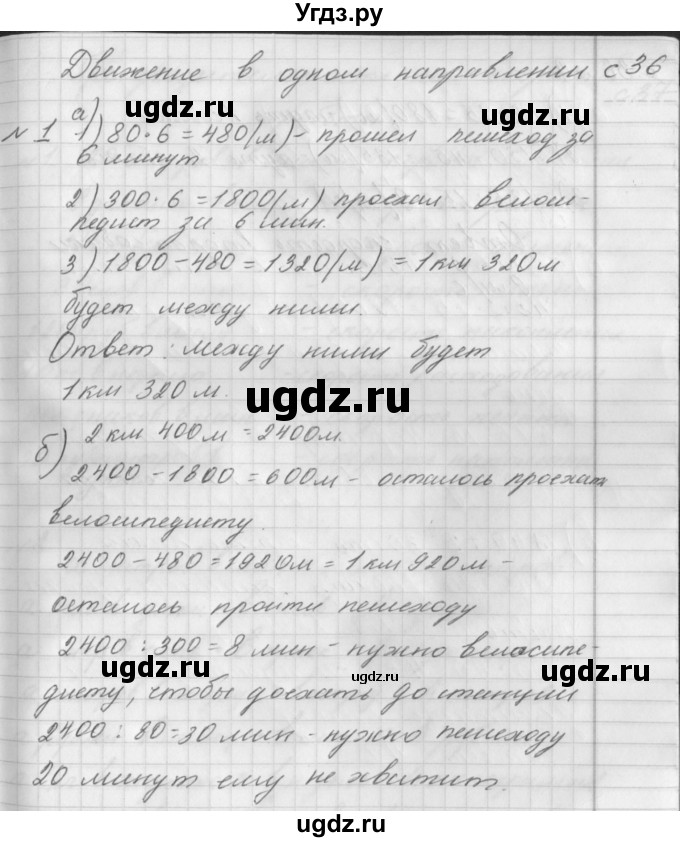 Угдз.ру
Движение в одном направлении с 36
а)
№ 1 1) 80·6 = 480(м) - прошел пешеход за
6 минут
ugdz.ru ugdz.ru ugdz.ru
2) 300·6 = 1800(м) проехал велоси-
педист за 6 мин.
3) 1800 - 480 = 1320(м) = 1 км 320 м
будет между ними.
Ответ: между ними будет
1 км 320 м.
ugdz.ru ugdz.ru ugdz.ru
б) 2 км 400 м = 2400 м.
2400 - 1800 = 600 м - осталось проехать
велосипедисту.
2400 - 480 = 1920 м = 1 км 920 м -
осталось пройти пешеходу
2400 : 300 = 8 мин - нужно велосипе-
ugdz.ru ugdz.ru ugdz.ru
дисту, чтобы доехать до станции
2400 : 80 = 30 мин - нужно пешеходу
20 минут ему не хватит.
ugdz.ru